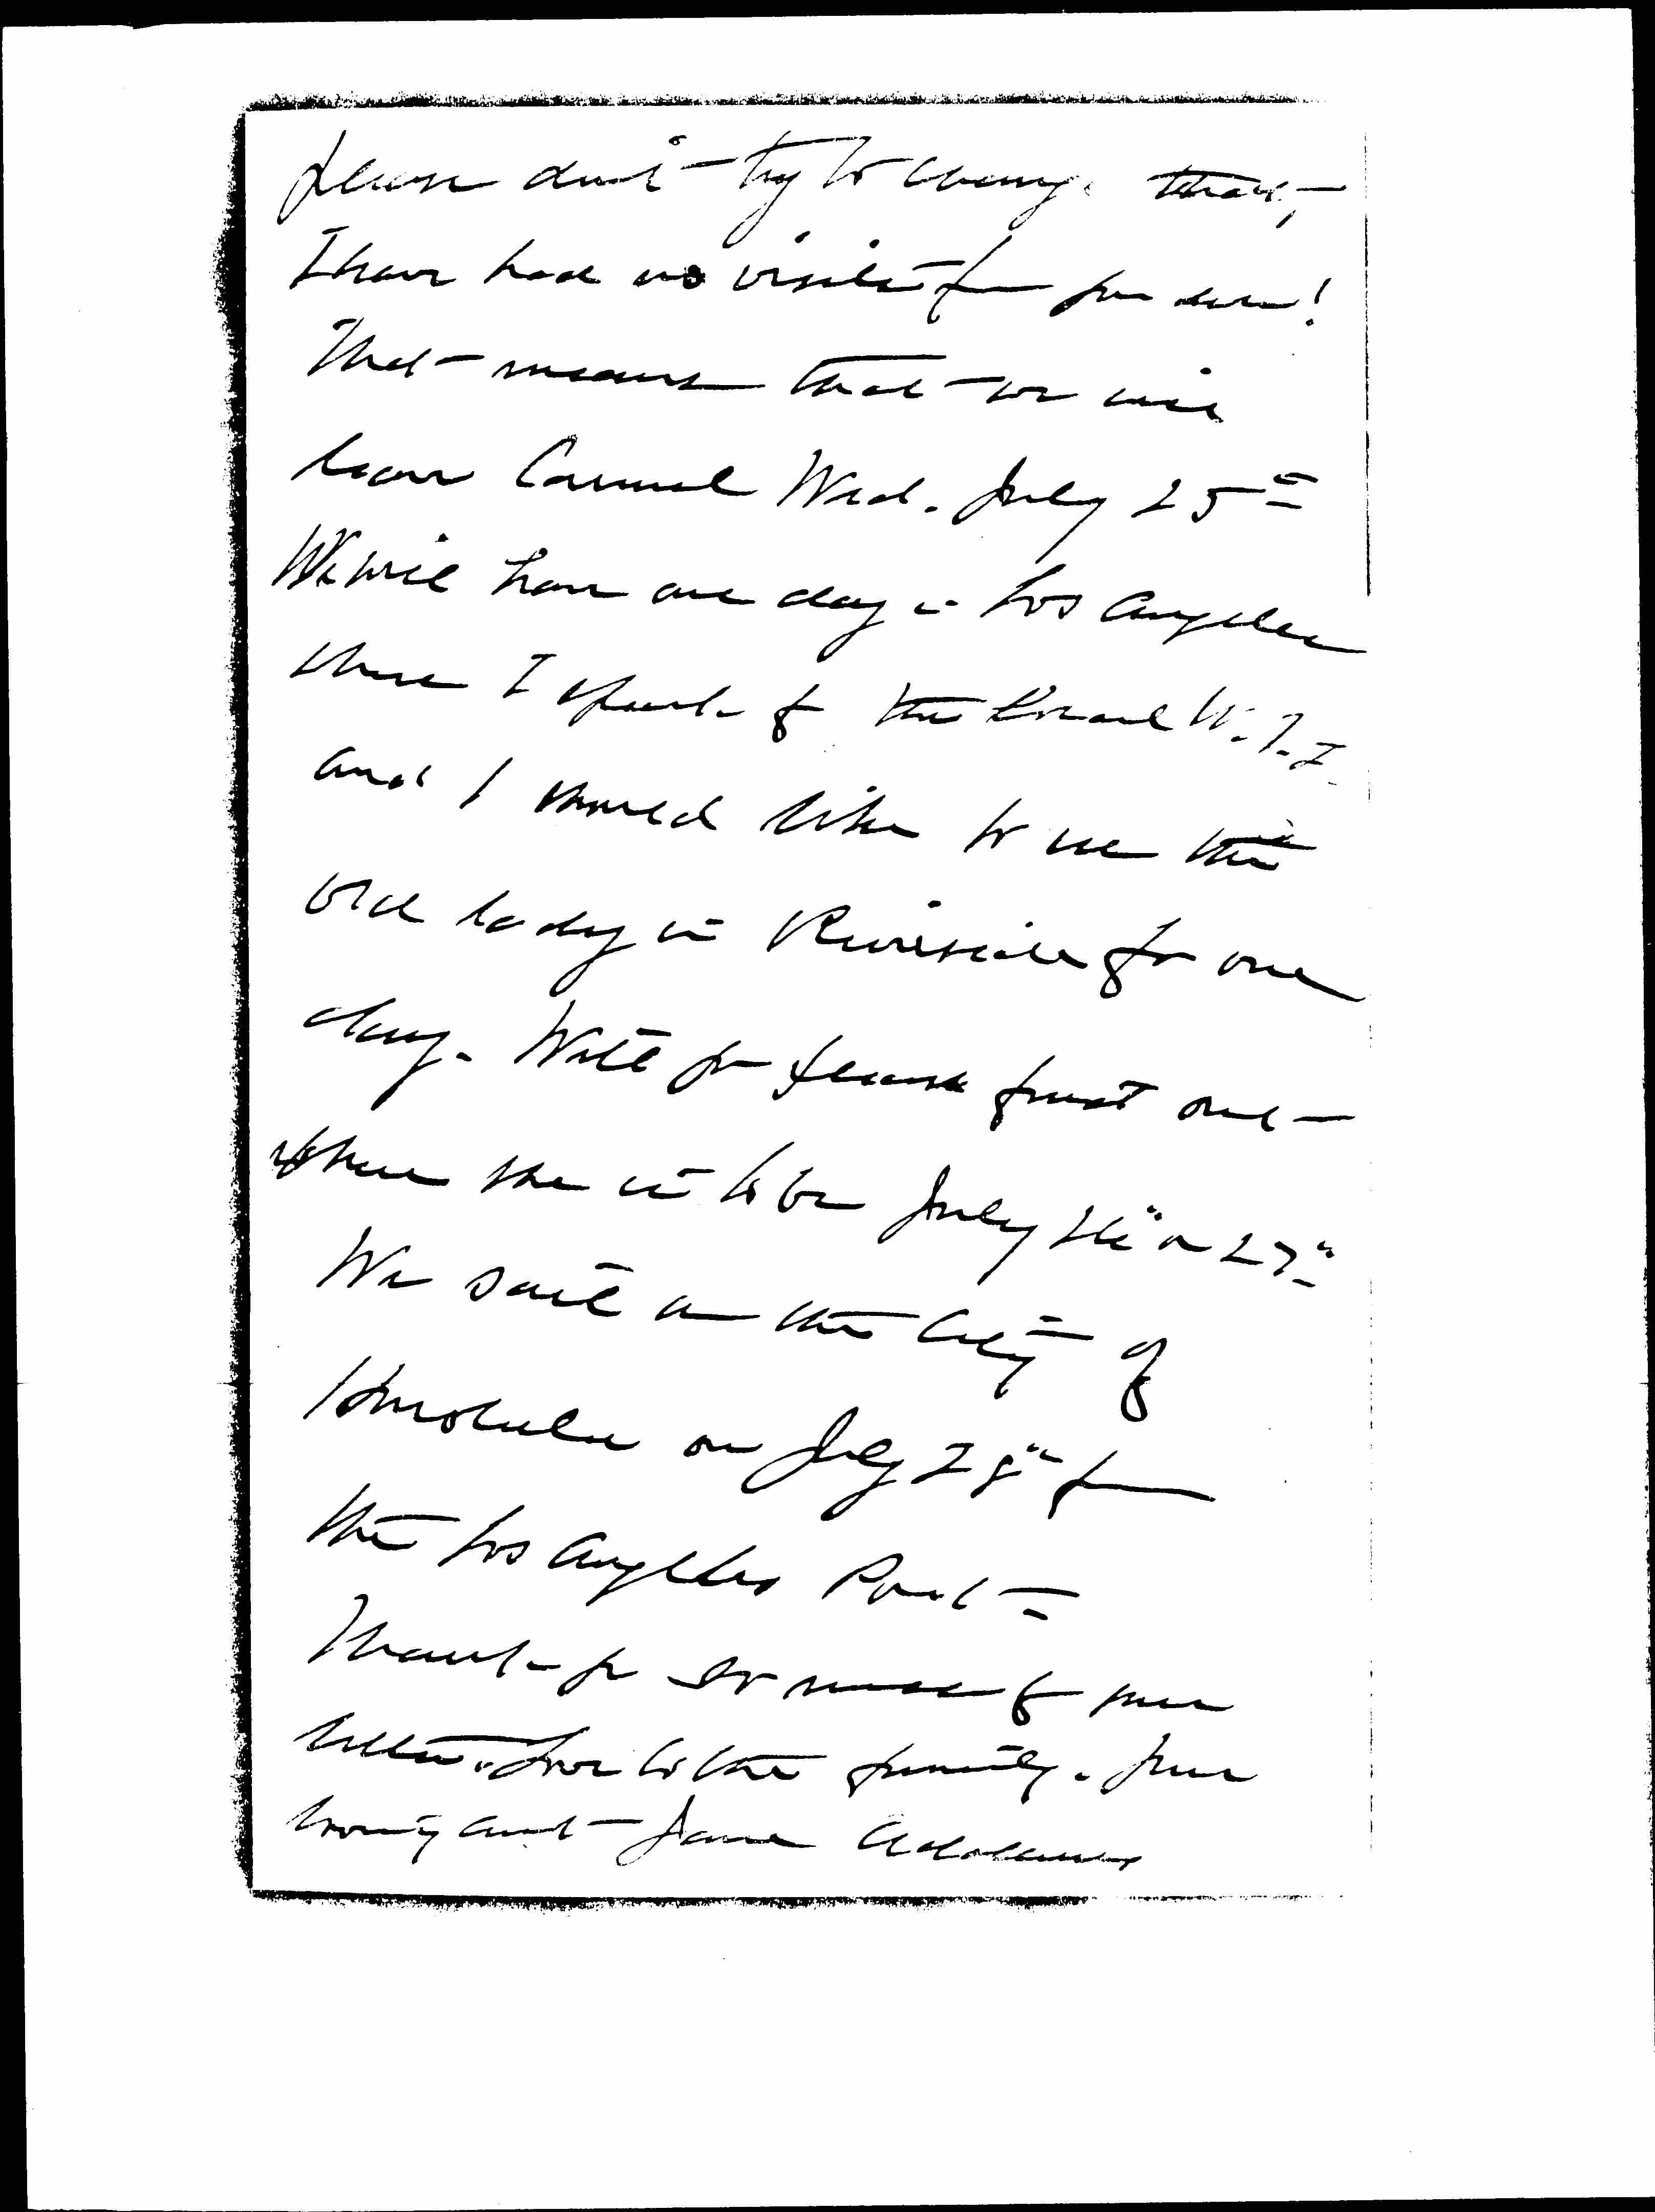 please don't try to change that,
I have had no visit from you dear!
That means that we will
leave Carmel Wed. July 25"
We will have one day in Los Angeles
where I speak for the local W.I.L
and I would like to see the
old lady in Riverside for one
day. Will you please find out
where she is to be July 26" or 27"
We sail on the City of
Honolulu on July 28" from
the Los Angeles Port
Thank you so much for your
letter. Love to the family. Your
loving aunt Jane Addams